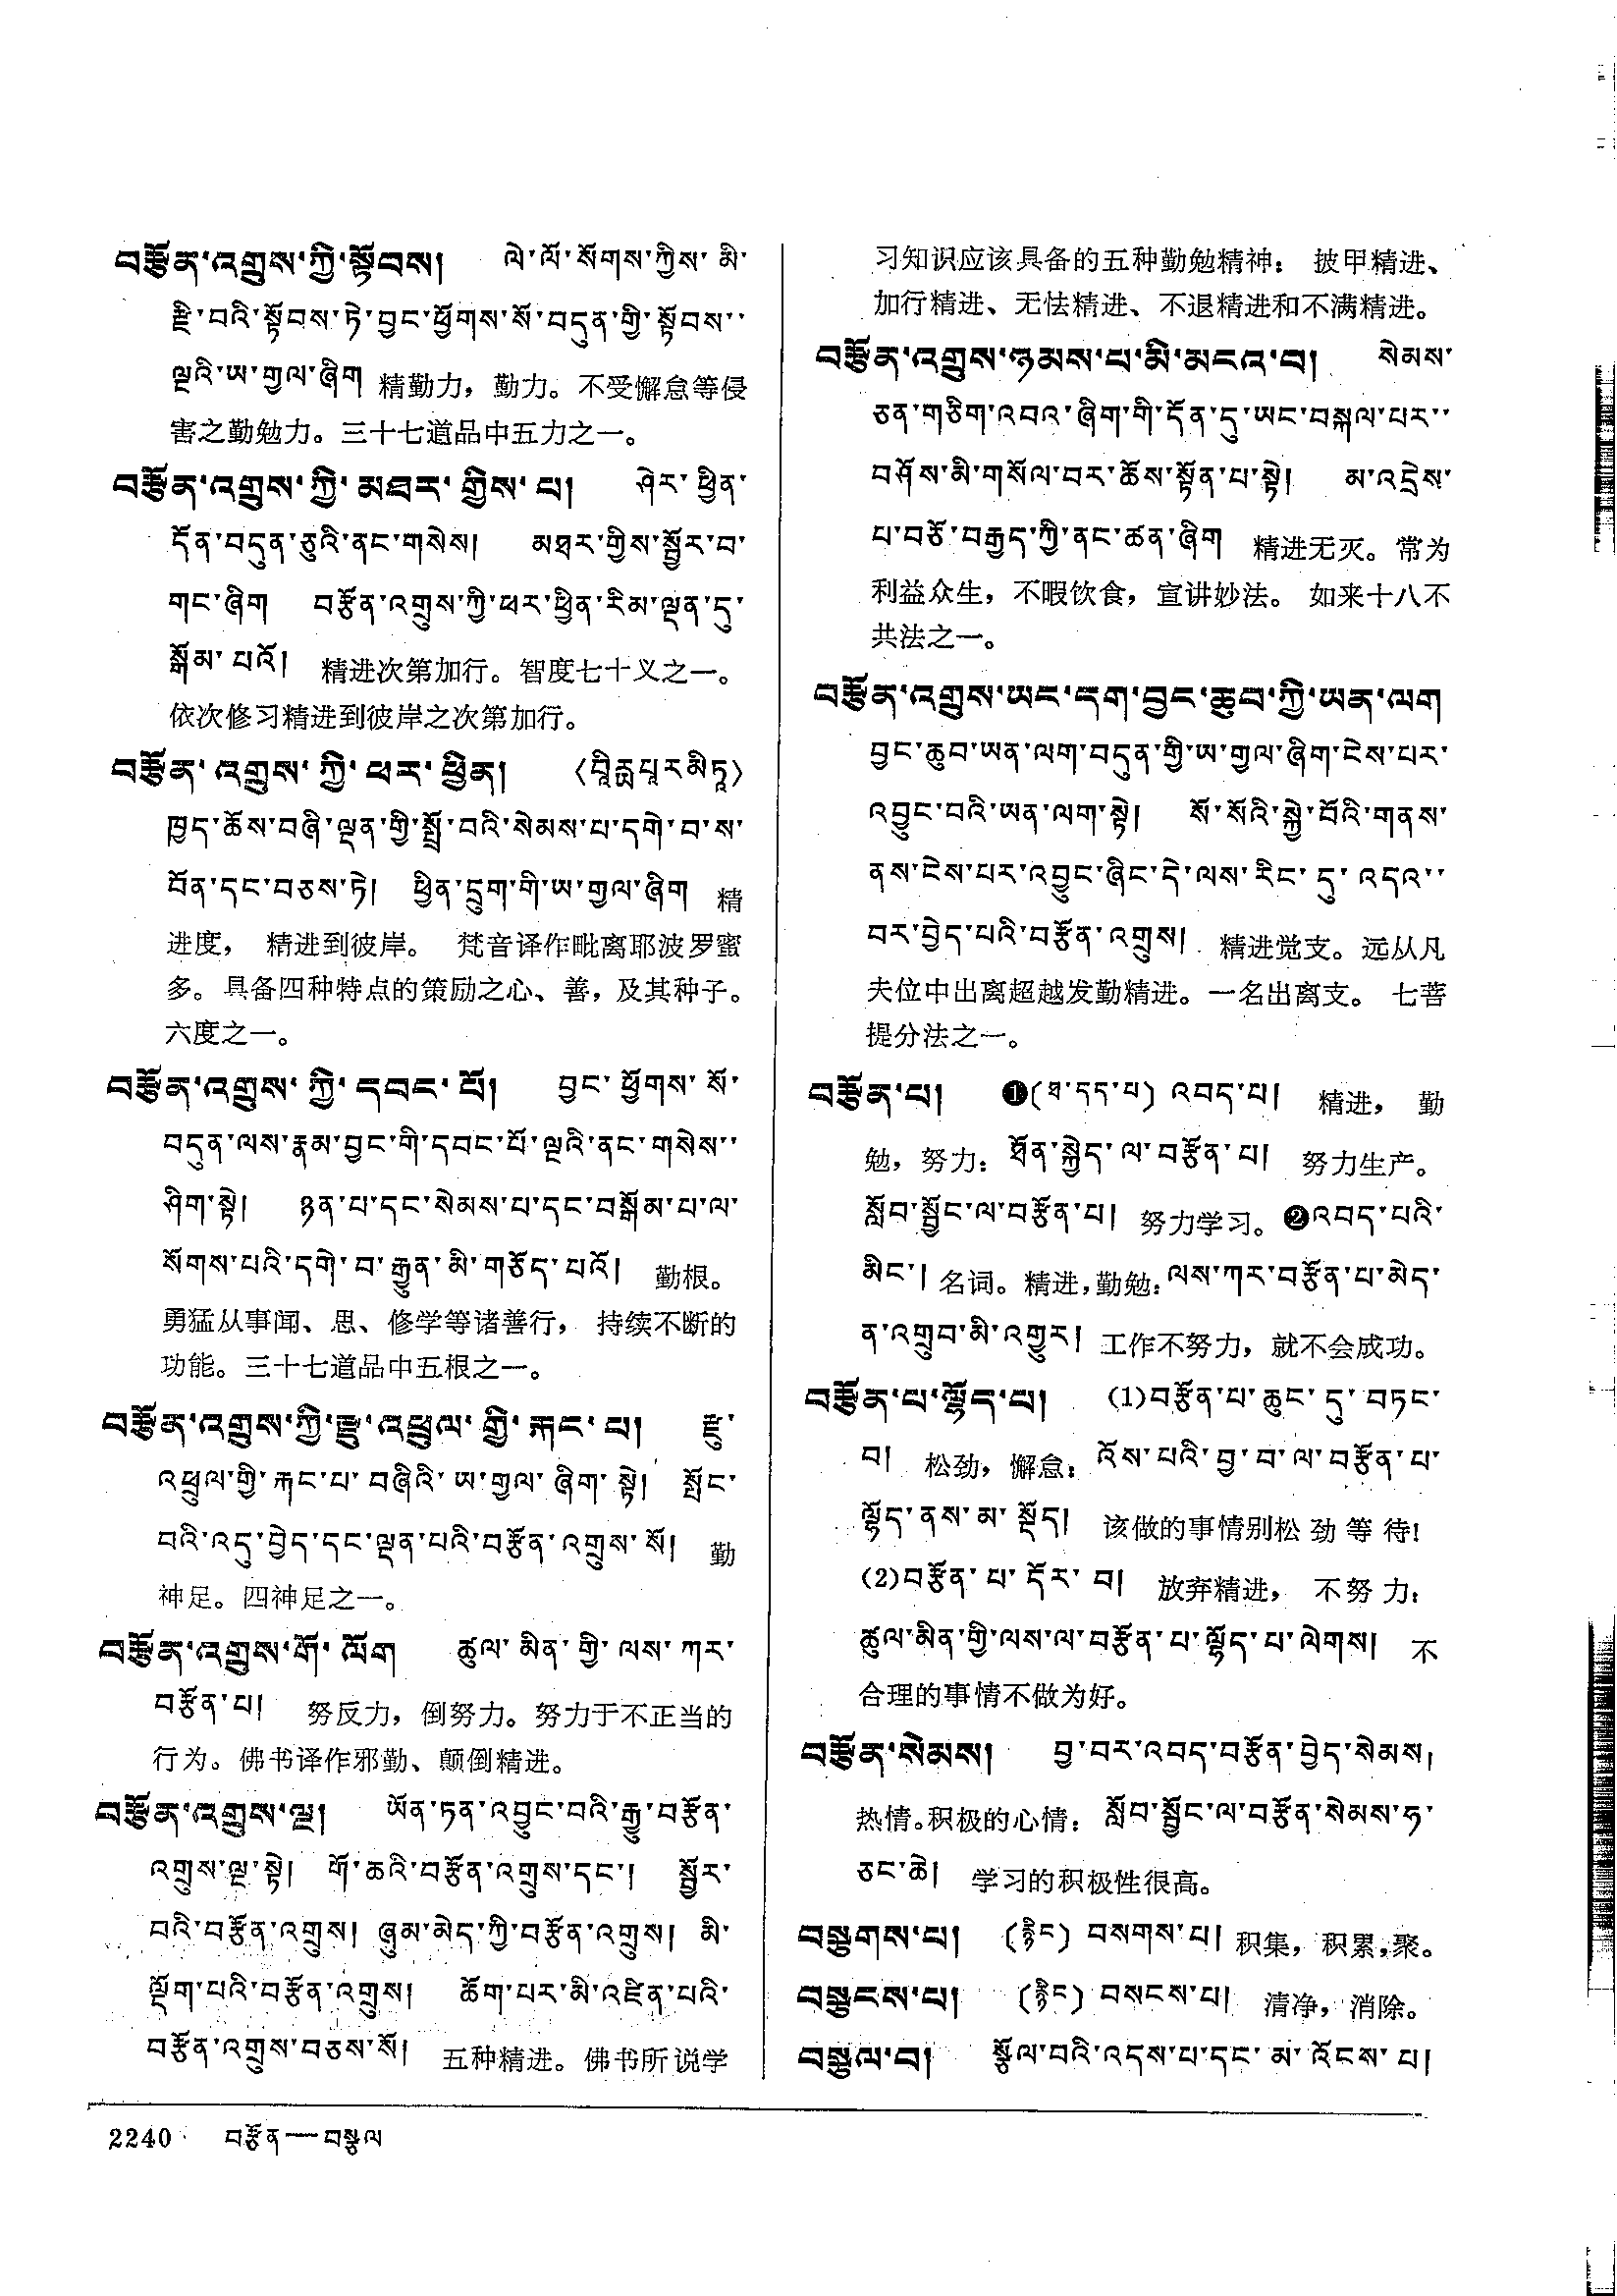 བརྩོན་འགྲུས་ཀྱི་སྟོབས། ལེ་ལོ་སོགས་ཀྱིས་མི་
རྫི་བའི་སྟོབས་ཏེ་བྱང་ཕྱོགས་སོ་བདུན་གྱི་སྟོབས་་
ལྔའི་ཡ་གྱལ་ཞིག 精勤力，勤力。不受懈怠等侵
害之勤勉力。三十七道品中五力之一。
བརྩོན་འགྲུས་ཀྱི་མཐར་གྱིས་པ། ཤེར་ཕྱིན་
དོན་བདུན་ཅུའི་ནང་གསེས། མཐར་གྱིས་སྦྱོར་བ་
གང་ཞིག བརྩོན་འགྲུས་ཀྱི་ཕར་ཕྱིན་རིམ་ལྡན་དུ་
སྒོམ་པའོ། 精进次第加行。智度七十义之一。
依次修习精进到彼岸之次第加行。
བརྩོན་འགྲུས་ཀྱི་ཕར་ཕྱིན། 〈བཱིརྱཔཱརམིཏཱ〉
ཁྱད་ཆོས་བཞི་ལྡན་གྱི་སྤྲོ་བའི་སེམས་པ་དགེ་བ་ས་
བོན་དང་བཅས་ཏེ། ཕྱིན་དྲུག་གི་ཡ་གྱལ་ཞིག 精
进度， 精进到彼岸。 梵音译作毗离耶波罗蜜
多。具备四种特点的策励之心、善，及其种子。
六度之一。
བརྩོན་འགྲུས་ཀྱི་དབང་པོ། བྱང་ཕྱོགས་སོ་
བདུན་ལས་རྣམ་བྱང་གི་དབང་པོ་ལྔའི་ནང་གསེས་་
ཤིག་སྟེ། ཉན་པ་དང་སེམས་པ་དང་བསྒོམ་པ་ལ་
སོགས་པའི་དགེ་བ་རྒྱུན་མི་གཅོད་པའོ། 勤根。
勇猛从事闻、思、修学等诸善行， 持续不断的
功能。三十七道品中五根之一。
བརྩོན་འགྲུས་ཀྱི་རྫུ་འཕྲུལ་གྱི་རྐང་པ། རྫུ་
འཕྲུལ་གྱི་རྐང་པ་བཞིའི་ཡ་གྱལ་ཞིག་སྟེ། སྤོང་
བའི་འདུ་བྱེད་དང་ལྡན་པའི་བརྩོན་འགྲུས་སོ། 勤
神足。四神足之一。
བརྩོན་འགྲུས་གོ་ལོག ཚུལ་མིན་གྱི་ལས་ཀར་
བརྩོན་པ། 努反力，倒努力。努力于不正当的
行为。佛书译作邪勤、颠倒精进。
བརྩོན་འགྲུས་ལྔ། ཡོན་ཏན་འབྱུང་བའི་རྒྱུ་བརྩོན་
འགྲུས་ལྔ་སྟེ། གོ་ཆའི་བརྩོན་འགྲུས་དང་། སྦྱོར་
བའི་བརྩོན་འགྲུས། ཞུམ་མེད་ཀྱི་བརྩོན་འགྲུས། མི་
ལྡོག་པའི་བརྩོན་འགྲུས། ཆོག་པར་མི་འཛིན་པའི་
བརྩོན་འགྲུས་བཅས་སོ། 五种精进。佛书所说学
习知识应该具备的五种勤勉精神： 披甲精进、
加行精进、无怯精进、不退精进和不满精进。
བརྩོན་འགྲུས་ཉམས་པ་མི་མངའ་བ། སེམས་
ཅན་གཅིག་འབའ་ཞིག་གི་དོན་དུ་ཡང་བསྐལ་པར་་
བཤོས་མི་གསོལ་བར་ཆོས་སྟོན་པ་སྟེ། མ་འདྲེས་
པ་བཅོ་བརྒྱད་ཀྱི་ནང་ཚན་ཞིག 精进无灭。常为
利益众生，不暇饮食，宣讲妙法。 如来十八不
共法之一。
བརྩོན་འགྲུས་ཡང་དག་བྱང་ཆུབ་ཀྱི་ཡན་ལག
བྱང་ཆུབ་ཡན་ལག་བདུན་གྱི་ཡ་གྱལ་ཞིག་ངེས་པར་
འབྱུང་བའི་ཡན་ལག་སྟེ། སོ་སོའི་སྐྱེ་བོའི་གནས་
ནས་ངེས་པར་འབྱུང་ཞིང་དེ་ལས་རིང་དུ་འདའ་་
བར་བྱེད་པའི་བརྩོན་འགྲུས། 精进觉支。远从凡
夫位中出离超越发勤精进。一名出离支。 七菩
提分法之一。
བརྩོན་པ། ❶(ཐ་དད་པ) འབད་པ། 精进， 勤
勉，努力：ཐོན་སྐྱེད་ལ་བརྩོན་པ། 努力生产。
སློབ་སྦྱོང་ལ་བརྩོན་པ། 努力学习。❷འབད་པའི་
མིང་། 名词。精进，勤勉：ལས་ཀར་བརྩོན་པ་མེད་
ན་འགྲུབ་མི་འགྱུར། 工作不努力，就不会成功。
བརྩོན་པ་ལྷོད་པ། (1)བརྩོན་པ་ཆུང་དུ་བཏང་
བ། 松劲，懈怠：འོས་པའི་བྱ་བ་ལ་བརྩོན་པ་
ལྷོད་ནས་མ་སྡོད། 该做的事情别松劲等待！
(2)བརྩོན་པ་དོར་བ། 放弃精进， 不努力：
ཚུལ་མིན་གྱི་ལས་ལ་བརྩོན་པ་ལྷོད་པ་ལེགས། 不
合理的事情不做为好。
བརྩོན་སེམས། བྱ་བར་འབད་བརྩོན་བྱེད་སེམས།
热情。积极的心情：སློབ་སྦྱོང་ལ་བརྩོན་སེམས་ཧ་
ཅང་ཆེ། 学习的积极性很高。
བསྩགས་པ། (རྙིང) བསགས་པ། 积集，积累，聚。
བསྩངས་པ། (རྙིང) བསངས་པ། 清净，消除。
བསྩལ་བ། སྩོལ་བའི་འདས་པ་དང་མ་འོངས་པ།
2240 བརྩོན—བསྩལ